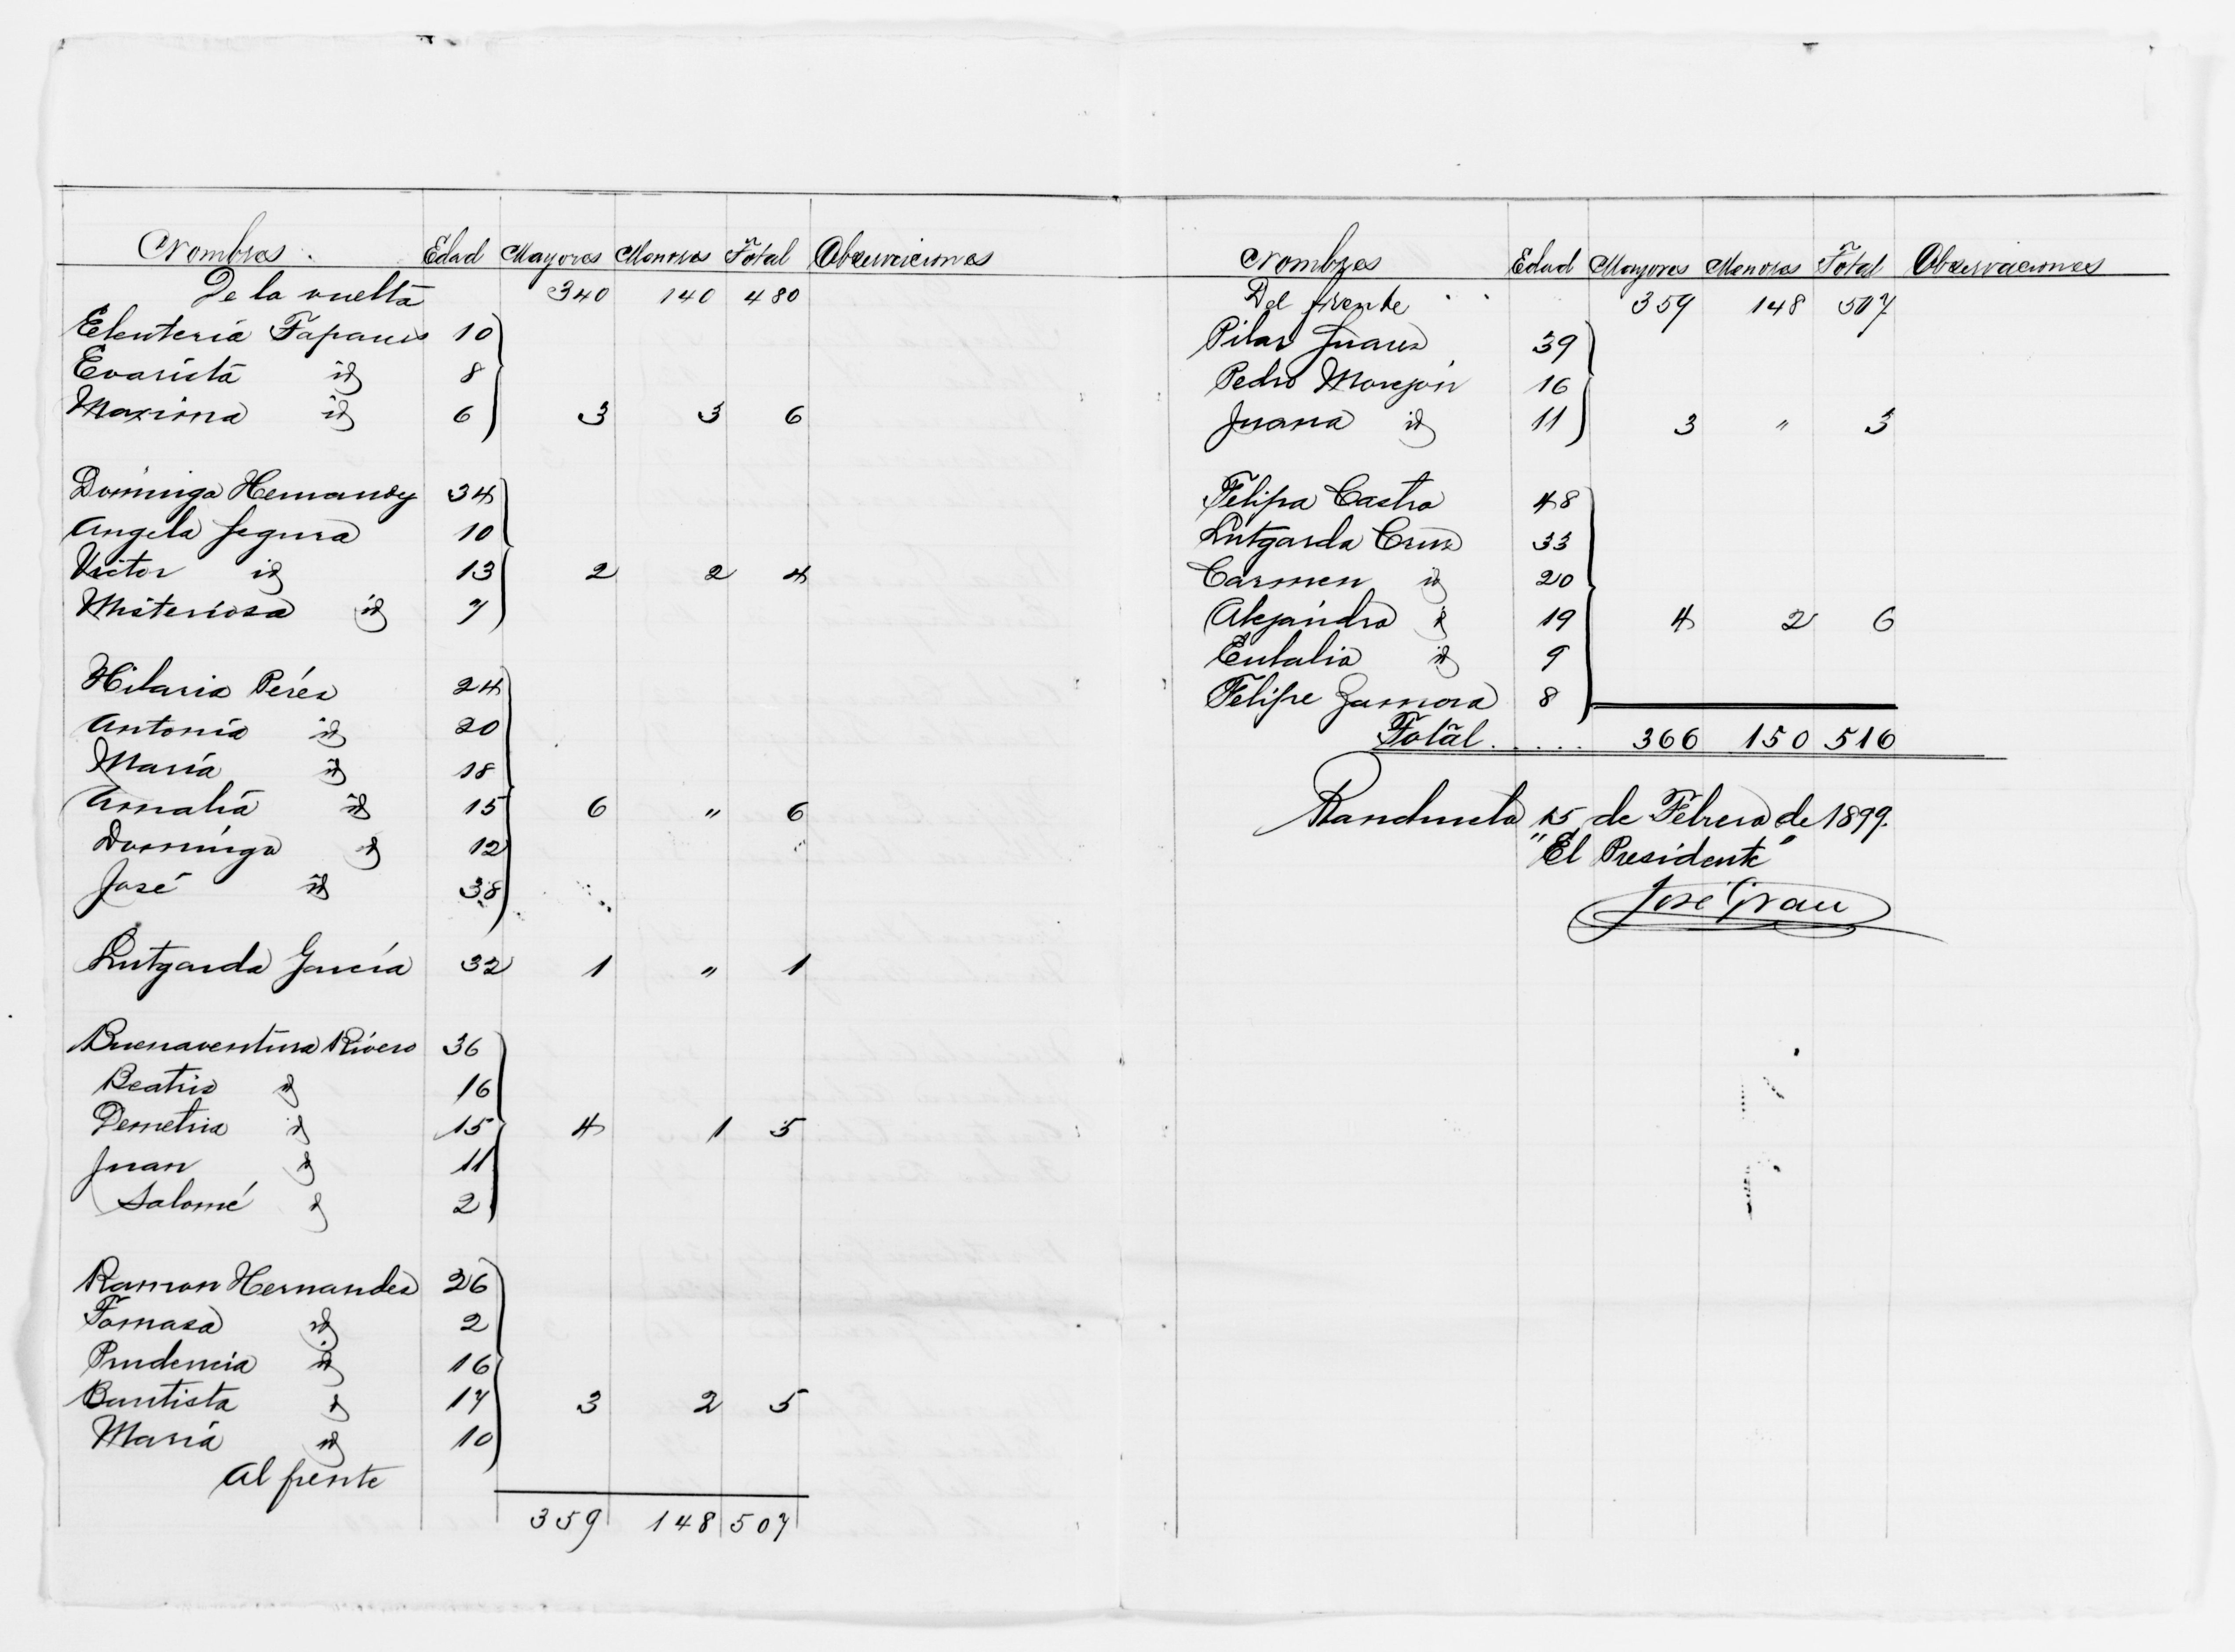 Nombres. Edad Mayores Menores Total Observaciones
De la vuelta 340 140 480
Eleuteria 10
Evarista id 8
Maxima id 6 3 3 6
Dominga Hernandez 34
Angela Segura 10
Victor id 13 2 2 4
Misteriosa id 7
Hilaria Peréz 24
Antonia id 20
María id 18
Amalia id 15 6 " 6
Dominga id 12
José id 38
Lutgarda García 32 1 " 1
Buenaventura Rivero 36
Beatriz id 16
Demetria id 15 4 1 5
Juan id 11
Salomé id 2
Ramon Hernandez 26
Tomasa id 2
Prudencia id 16
Bautista id 17 3 2 5
María id 10
Al frente
359 148 507
Nombres Edad Mayores Menores Total Observaciones
Del frente 359 148 507
Pilar Juarez 39
Pedro Morejón 16
Juana id 11 3 " 3
Felipa Castro 48
Lutgarda Cruz 33
Carmen id 20
Alejandra id 19 4 2 6
Eulalia id 9
Felipe Zamora 8
Total..... 366 150 516
Ranchuelo 15 de Febrero de 1899.
"El Presidente"
José Grau